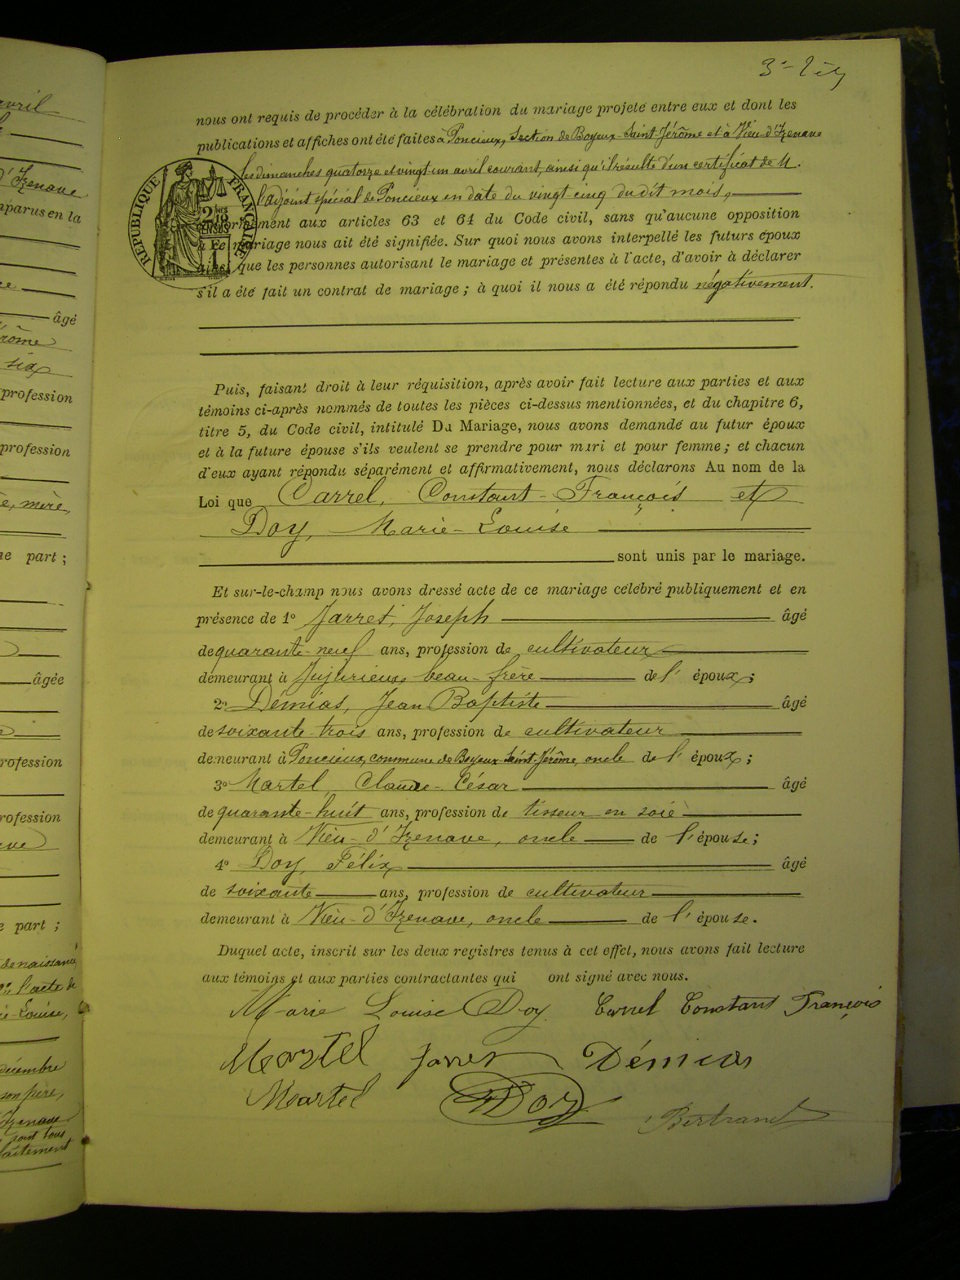 nous ont requis de procéder à la célébration du mariage projeté entre eux et dont les
publications et affiches ont été faites à Poncieux, Section de Boyeux-Saint-Jérôme et à Vieu-d'Izenave
les dimanches quatorze et vingt un avril courant, ainsi qu'il résulte d'un certificat de M.
l'adjoint spécial de Poncieux en date du vingt cinq du dit mois,
RÉPUBLIQUE FRANÇAISE
ment aux articles 63 et 64 du Code civil, sans qu'aucune opposition
à ce mariage nous ait été signifiée. Sur quoi nous avons interpellé les futurs époux
que les personnes autorisant le mariage et présentes à l'acte, d'avoir à déclarer
s'il a été fait un contrat de mariage ; à quoi il nous a été répondu négativement.
Puis, faisant droit à leur réquisition, après avoir fait lecture aux parties et aux
témoins ci-après nommés de toutes les pièces ci-dessus mentionnées, et du chapitre 6,
titre 5, du Code civil, intitulé Du Mariage, nous avons demandé au futur époux
et à la future épouse s'ils veulent se prendre pour mari et pour femme ; et chacun
d'eux ayant répondu séparément et affirmativement, nous déclarons Au nom de la
Loi que Carrel, Constant-François et
Doy, Marie-Louise
sont unis par le mariage.
Et sur-le-champ nous avons dressé acte de ce mariage célébré publiquement et en
présence de 1º Jarret, Joseph âgé
de quarante-neuf ans, profession de cultivateur
demeurant à Jujurieux, beau-frère de l'époux ;
2º Démias, Jean Baptiste âgé
de soixante trois ans, profession de cultivateur
demeurant à Poncieux, commune de Boyeux-Saint-Jérôme, oncle de l'époux ;
3º Martel, Claude-César âgé
de quarante-huit ans, profession de tisseur en soie
demeurant à Vieu-d'Izenave, oncle de l'épouse ;
4º Doy, Félix âgé
de soixante ans, profession de cultivateur
demeurant à Vieu-d'Izenave, oncle de l'épouse.
Duquel acte, inscrit sur les deux registres tenus à cet effet, nous avons fait lecture
aux témoins et aux parties contractantes qui ont signé avec nous.
Marie Louise Doy Carrel Constant François
Martel Jarret Démias
Martel Doy Bertrand